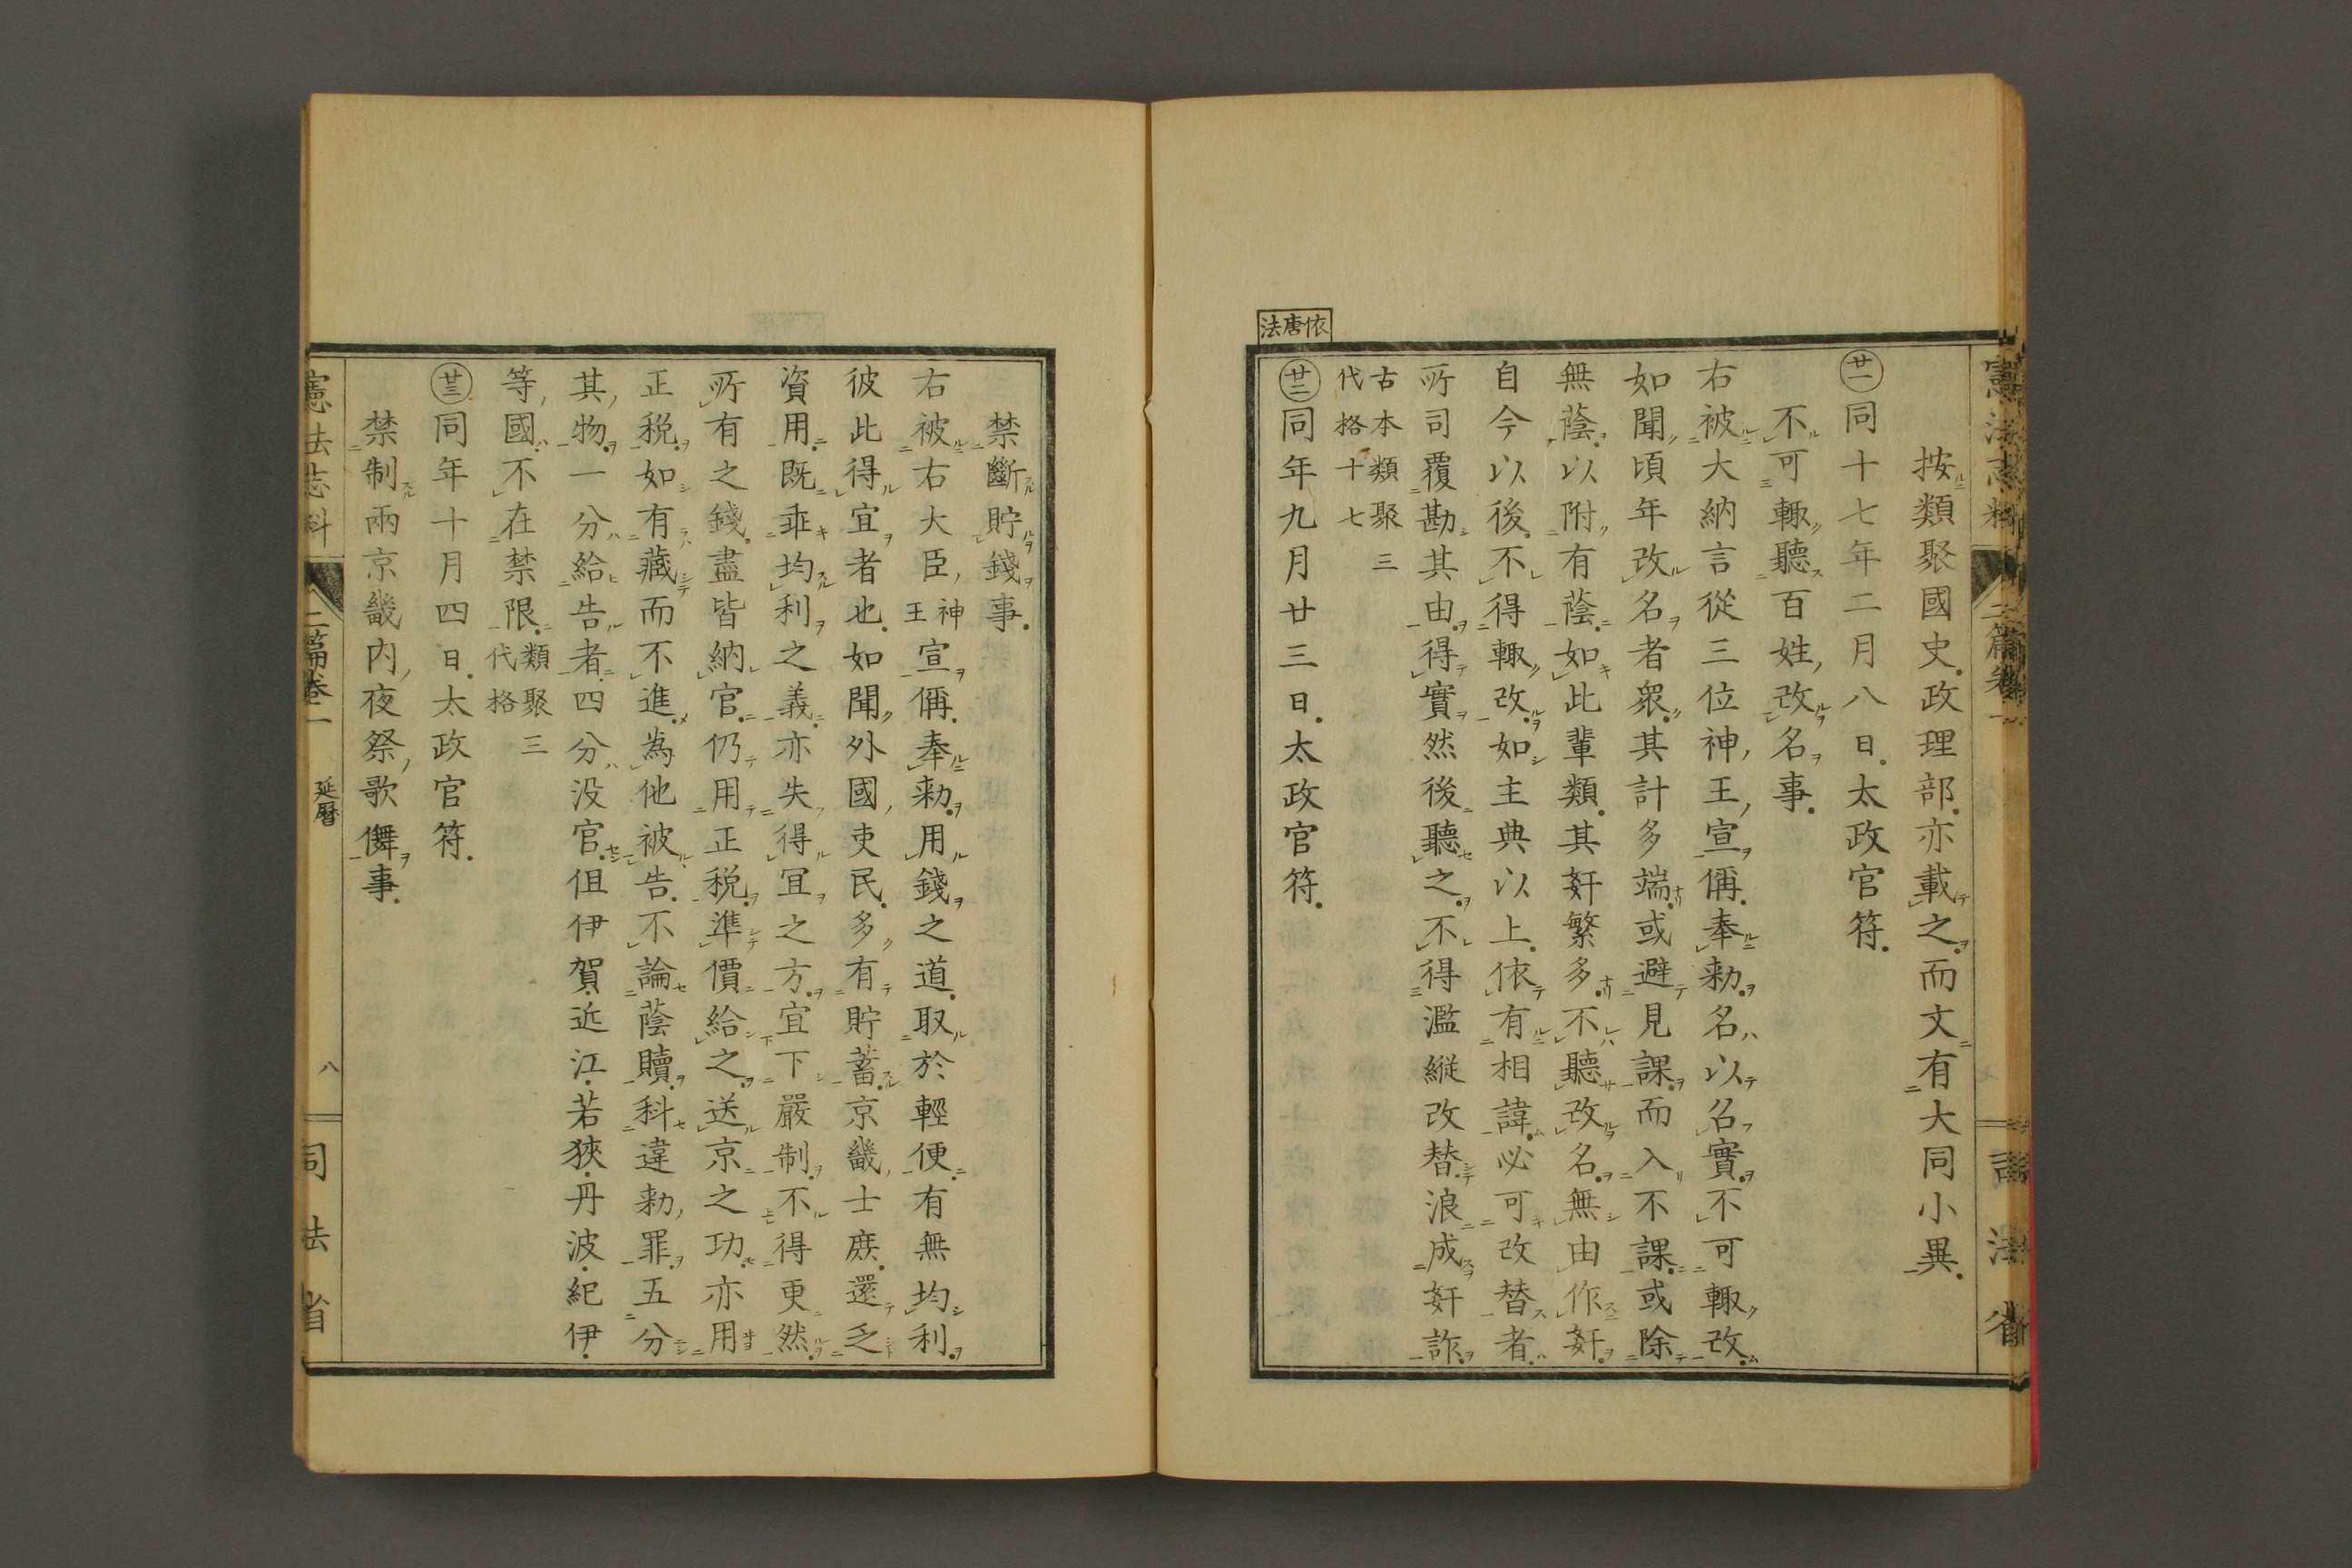 按類聚國史政理部亦載之而文有大同小異
廿一同十七年二月八日太政官符
不可輙聽百姓改名事
右被大納言從三位神王宣偁奉勅名以名實不可輙改
如聞頃年改名者衆其計多端或避見課而入不課或除
無蔭以附有蔭如此輩類其奸繁多不聽改名無由作奸
自今以後不得輙改如主典以上依有相諱必可改替者
所司覆勘其由得實然後聽之不得濫縦改替浪成奸詐
古本類聚三
代格十七
依唐法
廿二同年九月廿三日太政官符
禁斷貯錢事
右被右大臣神王宣偁奉勅用錢之道取於輕便有無均利
彼此得宜者也如聞外國吏民多有貯蓄京畿士庶還乏
資用既乖均利之義亦失得宜之方宜下嚴制不得更然
所有之錢盡皆納官仍用正税準價給之送京之功亦用
正税如有藏而不進為他被告不論蔭贖科違勅罪五分
其物一分給告者四分没官但伊賀近江若狹丹波紀伊
等國不在禁限類聚三
代格
廿三同年十月四日太政官符
禁制兩京畿内夜祭歌儛事
憲法志料
二篇卷一
延暦
八
司法省